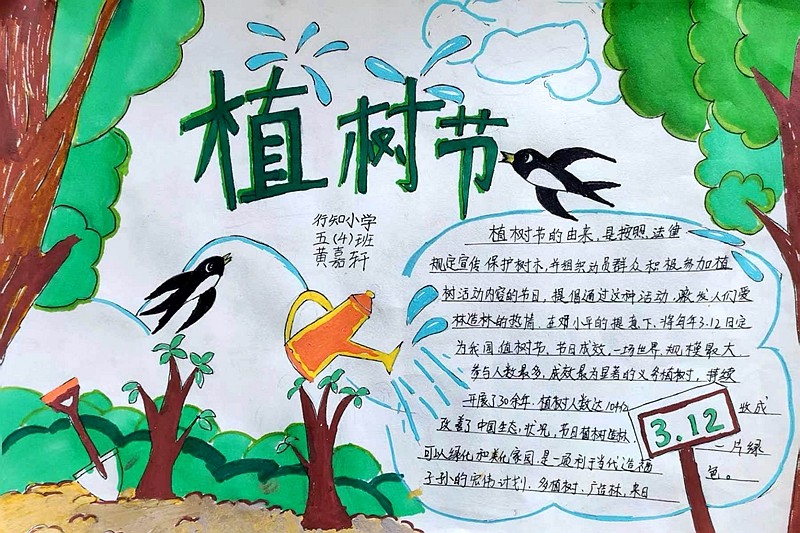 植树节
行知小学
五(4)班
黄嘉轩
植树节的由来,是按照法律
规定宣传保护树木,并组织动员群众积极参加植
树活动内容的节日,提倡通过这种活动,激发人们爱
林造林的热情.在邓小平的提意下,将每年3.12日定
为我国植树节.节日成效,一场世界规模最大
参与人数最多,成效最为显著的义务植树,持续
开展了30余年.植树人数达104亿
改善了中国生态状况,节日植树造林 收成
可以绿化和美化家园是一项利于当代造福 一片绿
子孙的宏伟计划.多植树,广造林,来日 色。
3.12